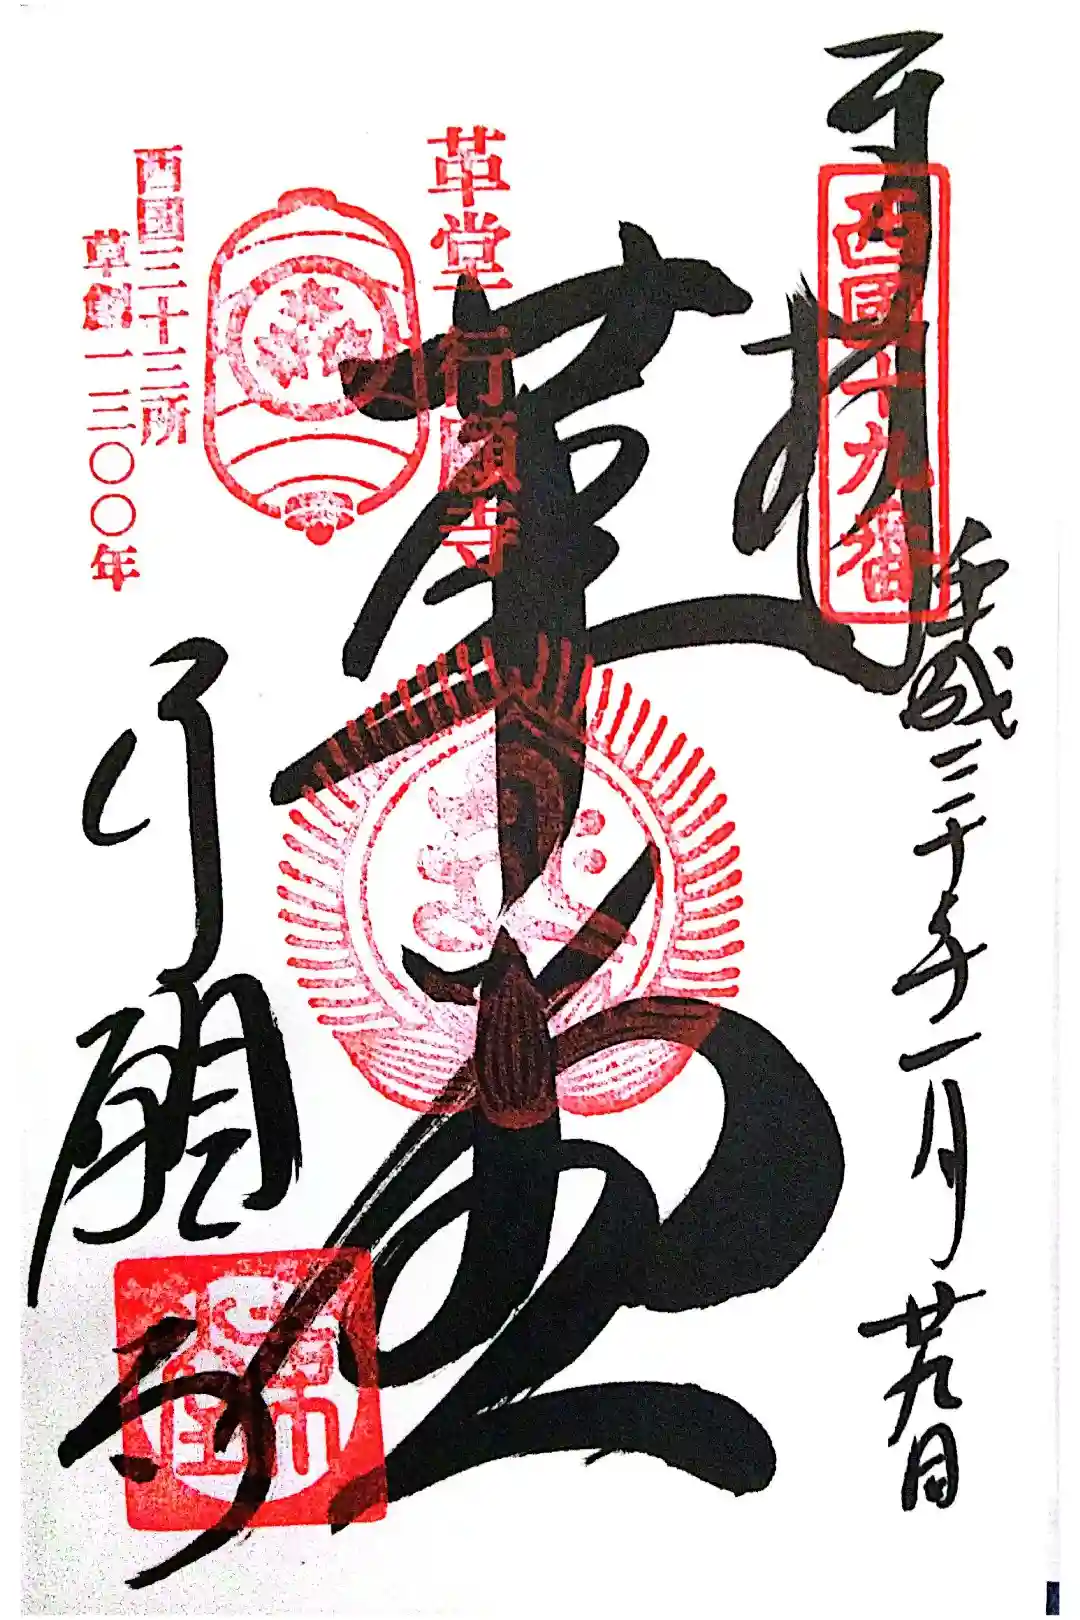 奉拝
西國十九番
平成三十年一月廿九日
革堂
革堂 行願寺
西國三十三所
草創一三〇〇年
行願寺